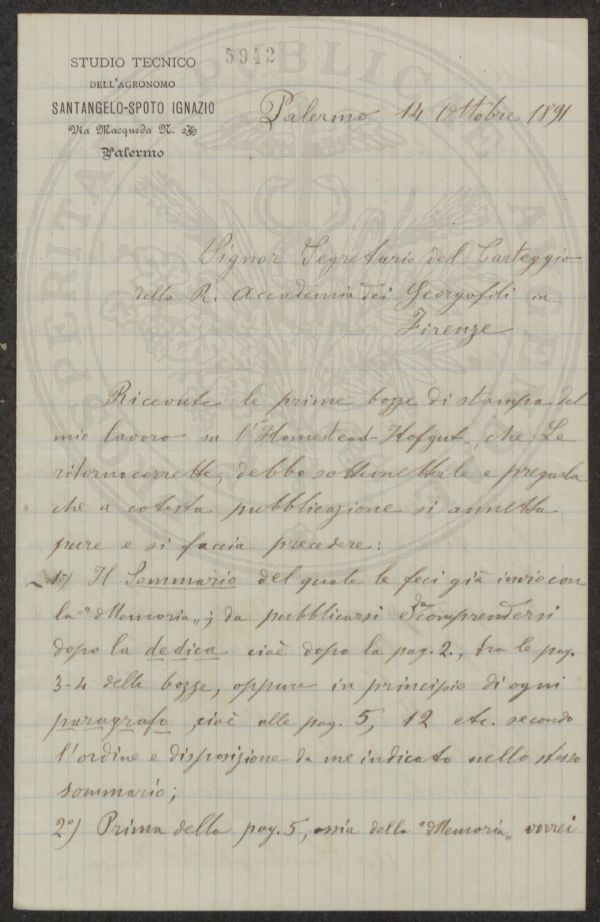 STUDIO TECNICO
DELL'AGRONOMO
SANTANGELO-SPOTO IGNAZIO
Via Macqueda N.
Palermo
5942
Palermo 14 Ottobre 1891
Signor Segretario del Carteggio
della R. Accademia dei Georgofili in
Firenze
Ricevute le prime bozze di stampa del
mio lavoro su l'"Homestead-Hofgut„ che Le
ritorno corrette, debbo sottometterle e pregarla
che a cotesta pubblicazione si annetta
pure e si faccia precedere:
1°) Il Sommario del quale le feci già invio con
la "Memoria„; da pubblicarsi e da comprendersi
dopo la dedica cioè dopo la pag. 2., tra le pag.
3-4 delle bozze, oppure in principio di ogni
paragrafo, cioè alle pag. 5, 12 etc. secondo
l'ordine e disposizione da me indicato nello stesso
sommario;
2°) Prima della pag. 5, ossia della "Memoria„ vorrei
PUBLICAE
PROSPERITATI
AUGENDAE